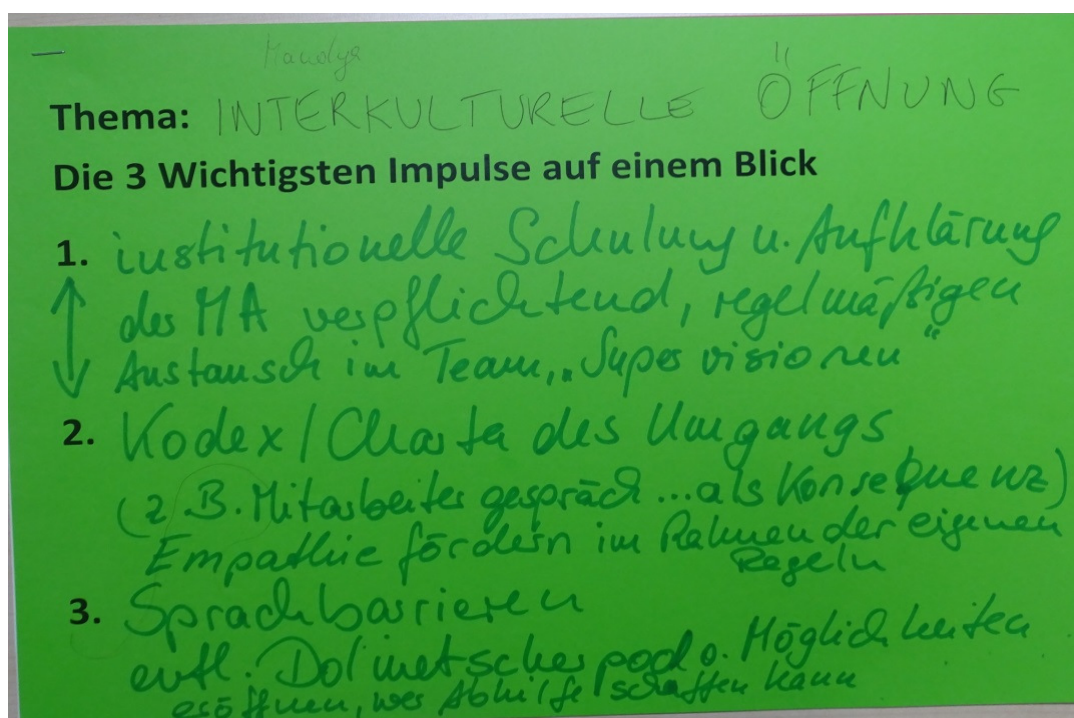 Thema: INTERKULTURELLE ÖFFNUNG
Die 3 Wichtigsten Impulse auf einem Blick
1. institutionelle Schulung u. Aufklärung
der MA verpflichtend, regelmäßigen
Austausch im Team, „Supervisionen“
2. Kodex/Charta des Umgangs
(z.B. Mitarbeitergespräch ... als Konsequenz)
Empathie fördern im Rahmen der eigenen
Regeln
3. Sprachbarrieren
evtl. Dolmetscherpool o. Möglichkeiten
eröffnen, wer Abhilfe schaffen kann